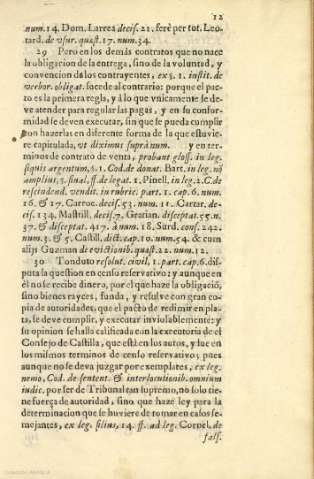 12
num.14. Dom. Larrea decis.21. ferè per tot. Leo-
tard. de vsur. quæst.17. num.34.
29 Pero en los demàs contratos que no nace
la obligacion de la entrega, sino de la voluntad, y
convencion de los contrayentes, ex §. 1. instit. de
verbor. obligat. sucede al contrario: porque el pac-
to es la primera regla, y à lo que vnicamente se de-
ve atender para regular las pagas, y en su confor-
midad se deven executar, sin que se pueda cumplir
con hazerlas en diferente forma de la que estuvie-
re capitulada, vt diximus suprà num. y en ter-
minos de contrato de venta, probant gloss. in leg.
siquis argentum, §.1. Cod. de donat. Bart. in leg. nõ
ampliùs, §. final. ff. de legat. 1. Pinell. in leg. 2. C. de
rescindead. vendit. in rubric. part. 1. cap. 6. num.
16. & 17. Carroc. decis. 53. num. 11. Cartar. de-
cis. 134. Mastrill. decis. 7. Gratian. disceptat. 55. n.
37. & disceptat. 417. à num. 18. Surd. cons. 242.
num. 3. & 5. Castill. dict. cap. 10. num. 54. & cum
alijs Guzman de evictionib. quæst. 22. num. 12.
30 Tonduto resolut. civil. 1. part. cap. 6. dis-
puta la question en censo reservativo: y aunque en
èl no se recibe dinero, por el que haze la obligaciõ,
sino bienes rayces, funda, y resuelve con gran co-
pia de autoridades, que el pacto de redimir en pla-
ta, se deve cumplir, y executar inviolablemente: y
su opinion se halla calificada con la executoria de el
Consejo de Castilla, que està en los autos, y fue en
los mismos terminos de censo reservativo; pues
aunque no se deva juzgar por exemplares, ex leg.
nemo, Cod. de sentent. & interlocutionib. omnium
iudic. por ser de Tribunal tan supremo, no solo tie-
ne fuerça de autoridad, sino que haze ley para la
determinacion que se huviere de tomar en casos se-
mejantes, ex leg. filius, 14. ff. ad leg. Cornel. de
fals.